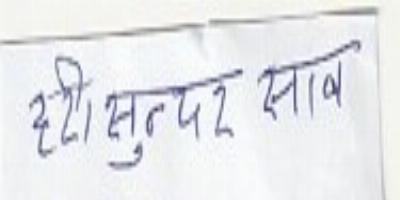 हरी सुन्दर साव